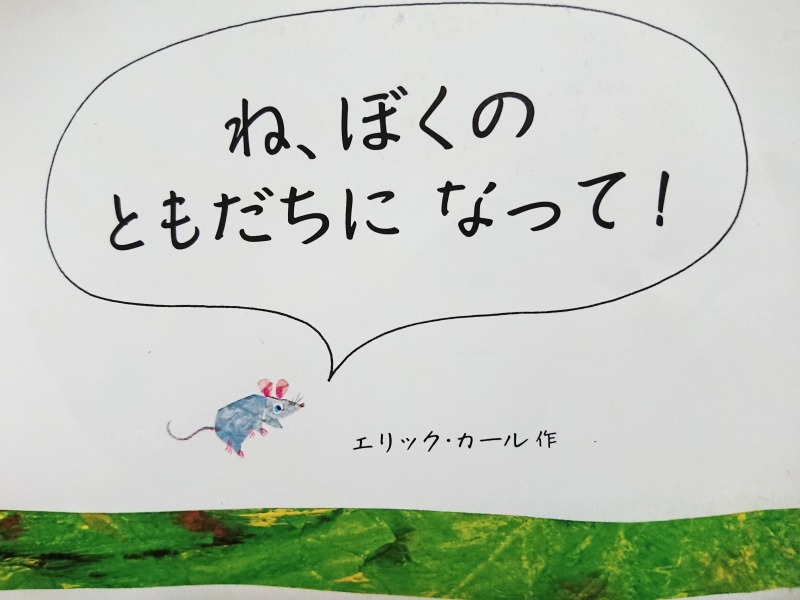 ね、ぼくの
ともだちに なって!
エリック・カール 作